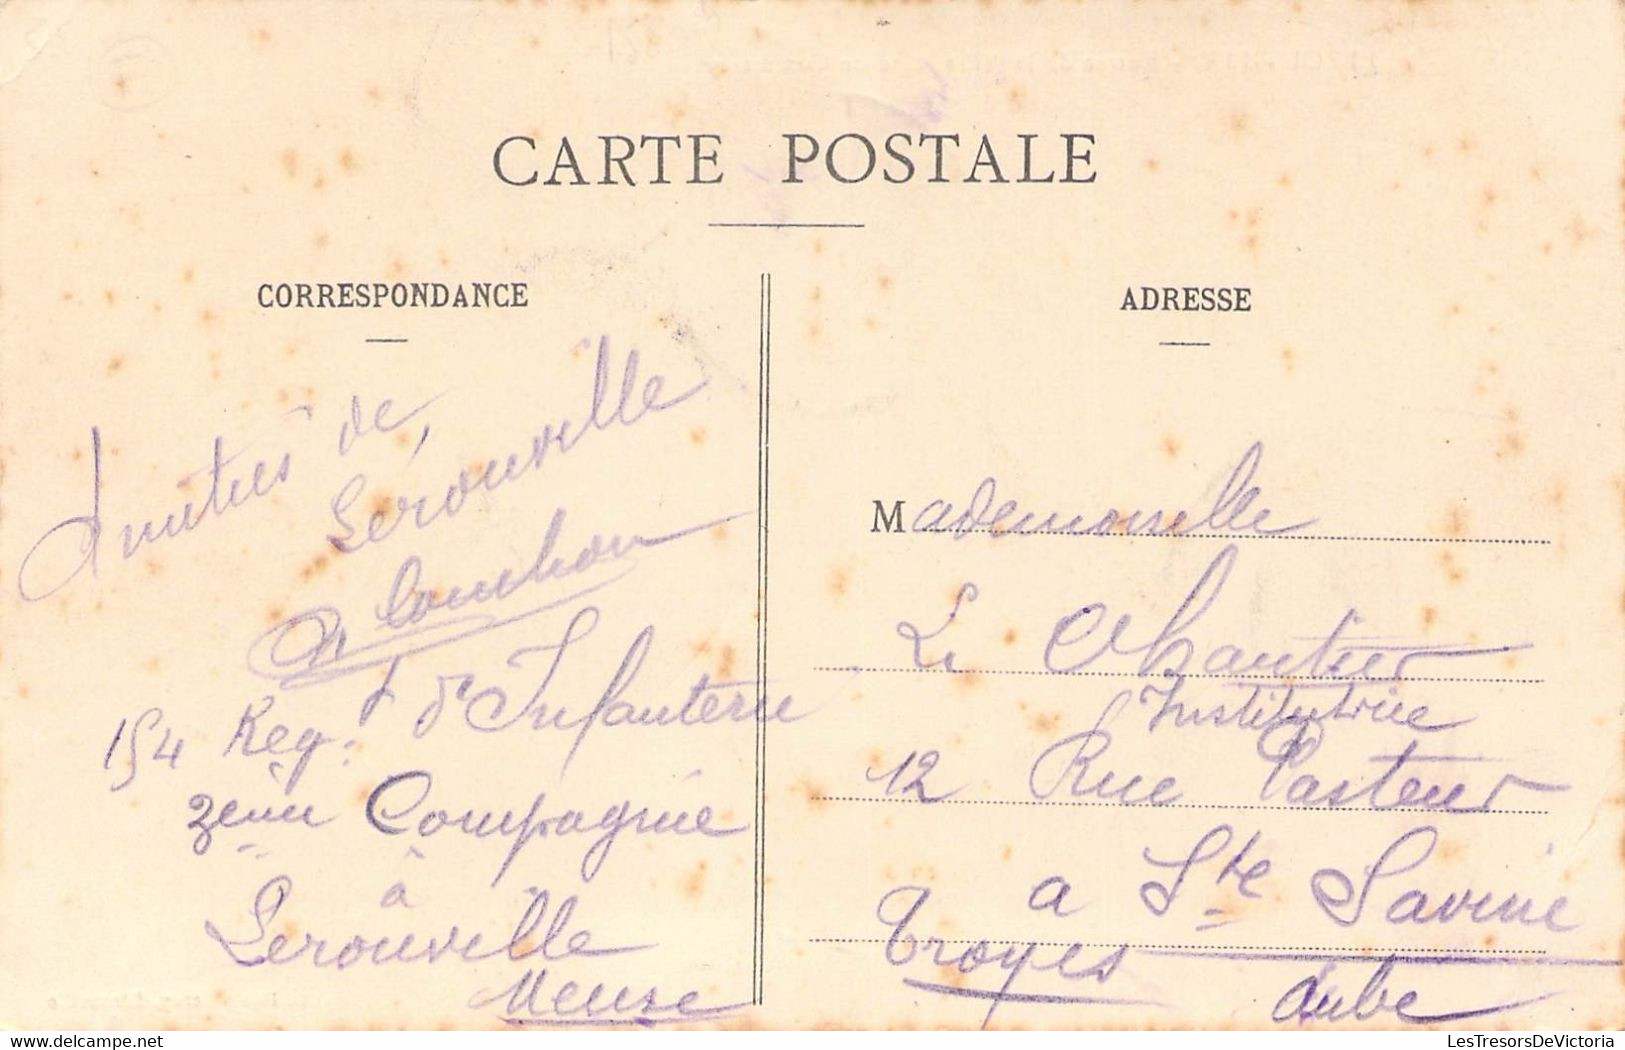 CARTE POSTALE
CORRESPONDANCE
Amitiés de
Lérouville
154 Reg.t d'Infanterie
3eme Compagnie
à
Lerouville
Meuse
ADRESSE
Mademoiselle
Le Chantier
Institutrice
12 Rue Pasteur
a Ste Savine
Troyes
Aube
LesTresorsDeVictoria
www.delcampe.net